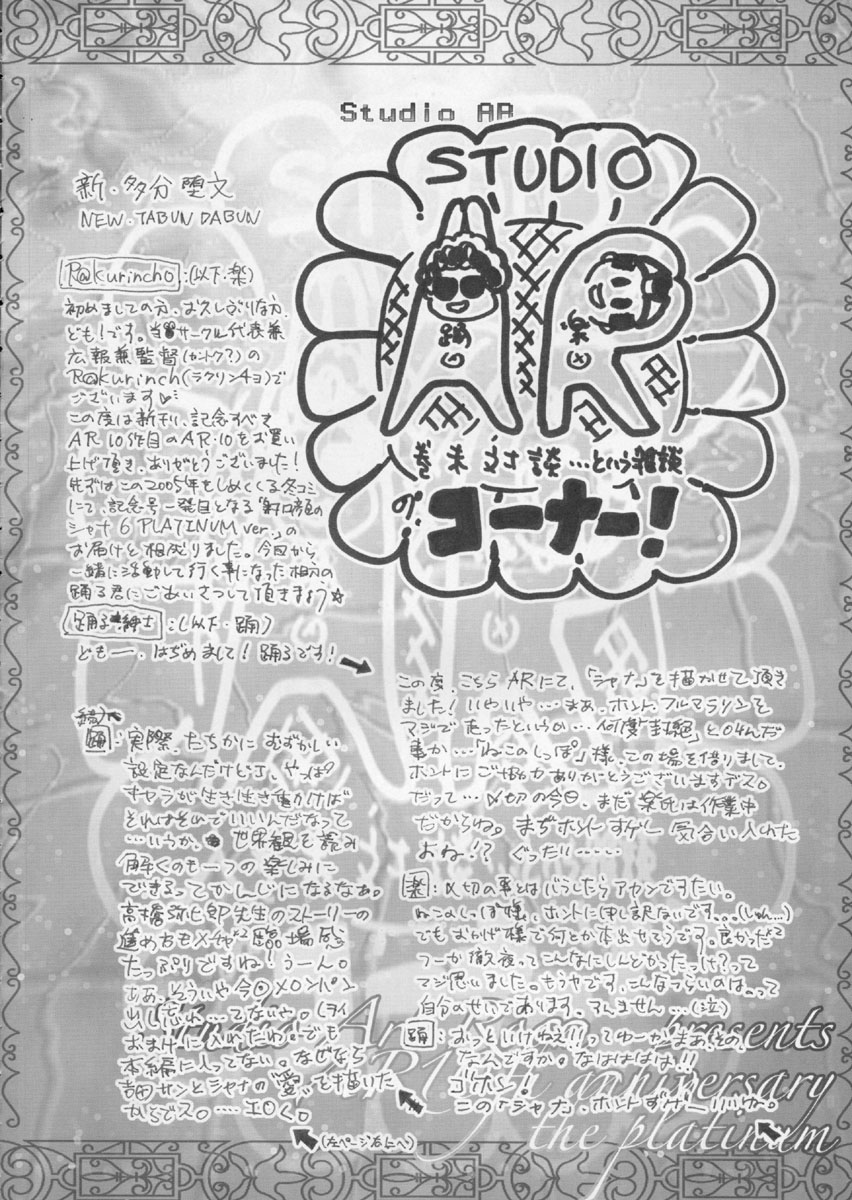 Studio AR
STUDIO
AR
踊
楽
巻末対談…という雑談
の
コーナー!
新・多分堕文
NEW・TABUN DABUN
R@kurincho:(以下・楽)
初めましての方、お久しぶりな方、
ども!です。当サークル代表兼
広報兼監督(カントク?)の
R@kurinch(ラクリンチョ)で
ございます
この度は新刊、記念すべき
AR 10作目のAR・10をお買い
上げ頂き、ありがとうございました!
先ずはこの2005年をしめくくる冬コミ
にて、記念号一発目となる「射口顔の
シャナ6 PLATINUM ver.」の
お届けと相成りました。今回から
一緒に活動して行く事になった相方の
踊る君にごあいさつして頂きましょう☆
踊る紳士:(以下・踊)
どもー、はぢめまして!踊るです!
この度、こちらARにて、「シャナ」を描かせて頂き
ました!いやいや…まあ、ホント、フルマラソンを
マジで走ったというか…何度「封絶」と叫んだ
事か…「ねこのしっぽ」様、この場を借りまして、
ホントにご協力ありがとうございますデス。
だって…〆切の今日、まだ楽氏は作業中
だからね。まぢホントすげー気合い入れた
よね!?ぐったり……
楽:〆切の事とはバラしたらアカンですたい。
ねこのしっぽ様、ホントに申し訳ないです。。。(しゅん…)
でもおかげ様で何とか本出せそうです。良かった²
フーか徹夜ってこんなにしんどかったっけ?って
マジ思いました。もうヤです、こんなつらいのは。って
自分のせいであります。すんません…(泣)
踊:おっといけねえ!!ってゆーか、まあ、その、
なんですか。なはははは!!
ゴホン!
この「シャナ」、ホントすげーいいんよ。
踊:実際、たちかにむずかしい
設定なんだけどさ、やっぱ
キャラが生き生き動けば
それはそのでいいんだなって
…いうか、世界観を読み
解くのも一つの楽しみに
できるってかんじになるなぁ。
高橋弥七郎先生のストーリーの
進め方もメチャ²臨場感
たっぷりですね!うーん。
ああ、そういや今回メロンパン
出し忘れ…てないや。(ヲイ
おまけに入れたわ。でも
本編に入ってない。なぜなら
吉田サンとシャナの“愛”を描いた
からでス。…エロく。
(左ページ右上へ)
Studio AR Lógo presents
AR10th anniversary
the platinum